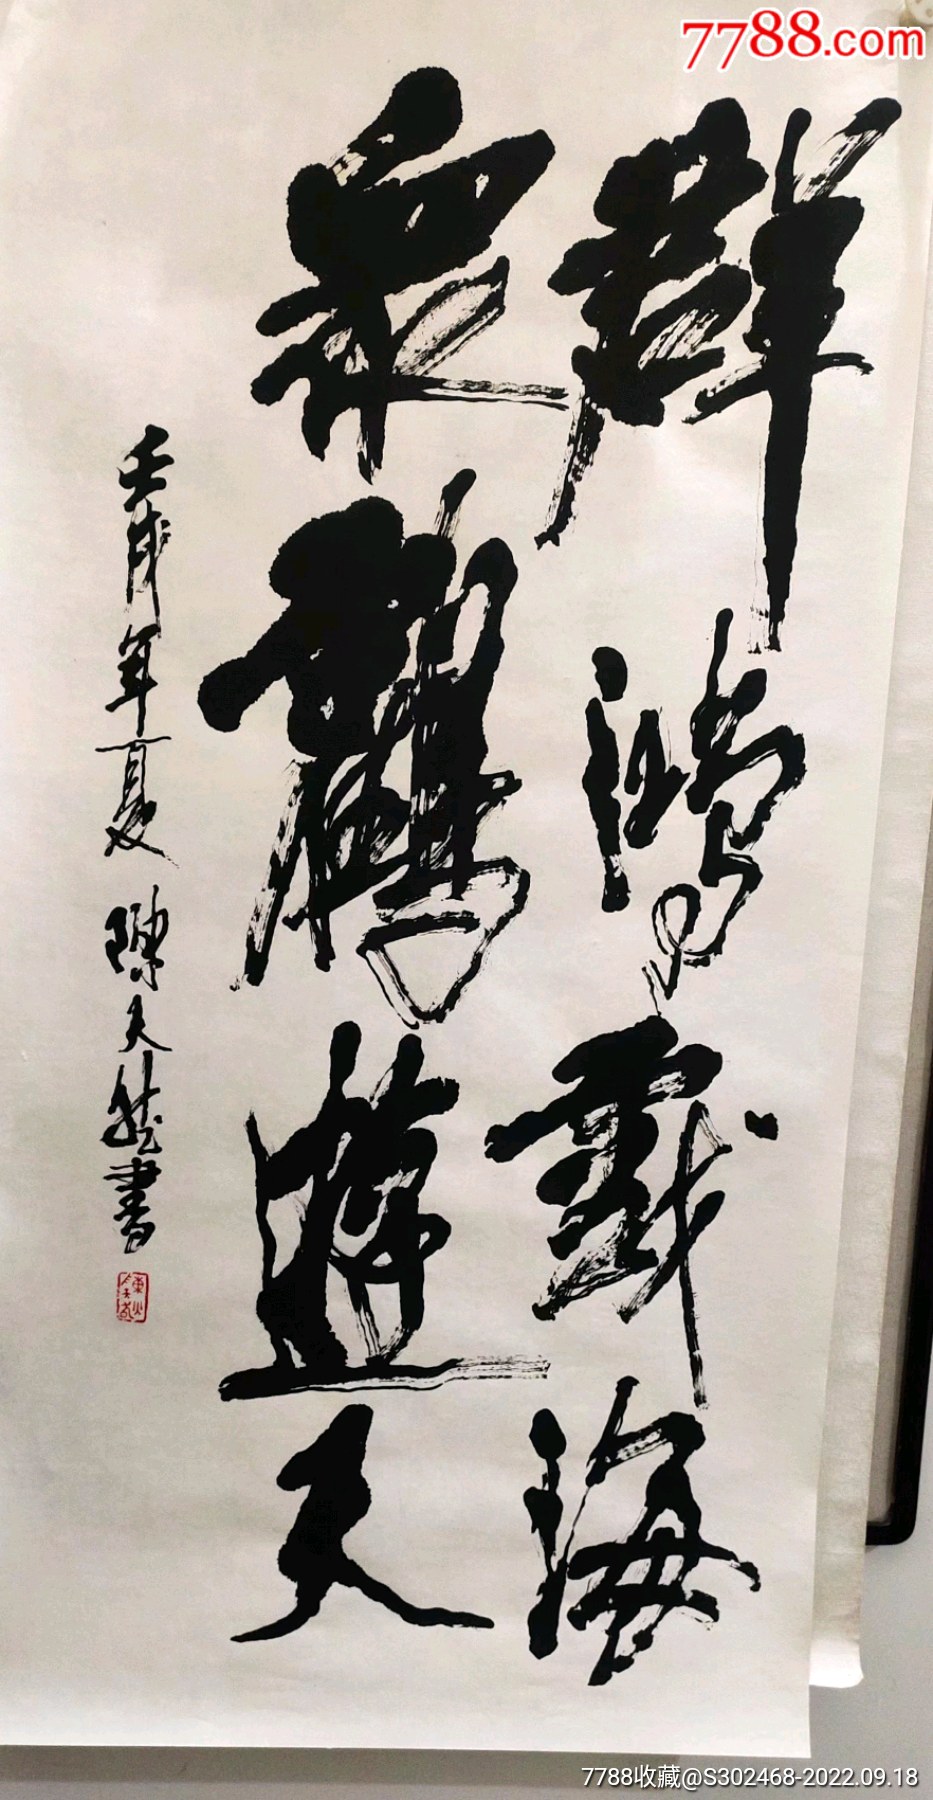 7788.com
群鸿戏海
众鹤游天
壬戌年夏 陈天然书
7788收藏@S302468-2022.09.18